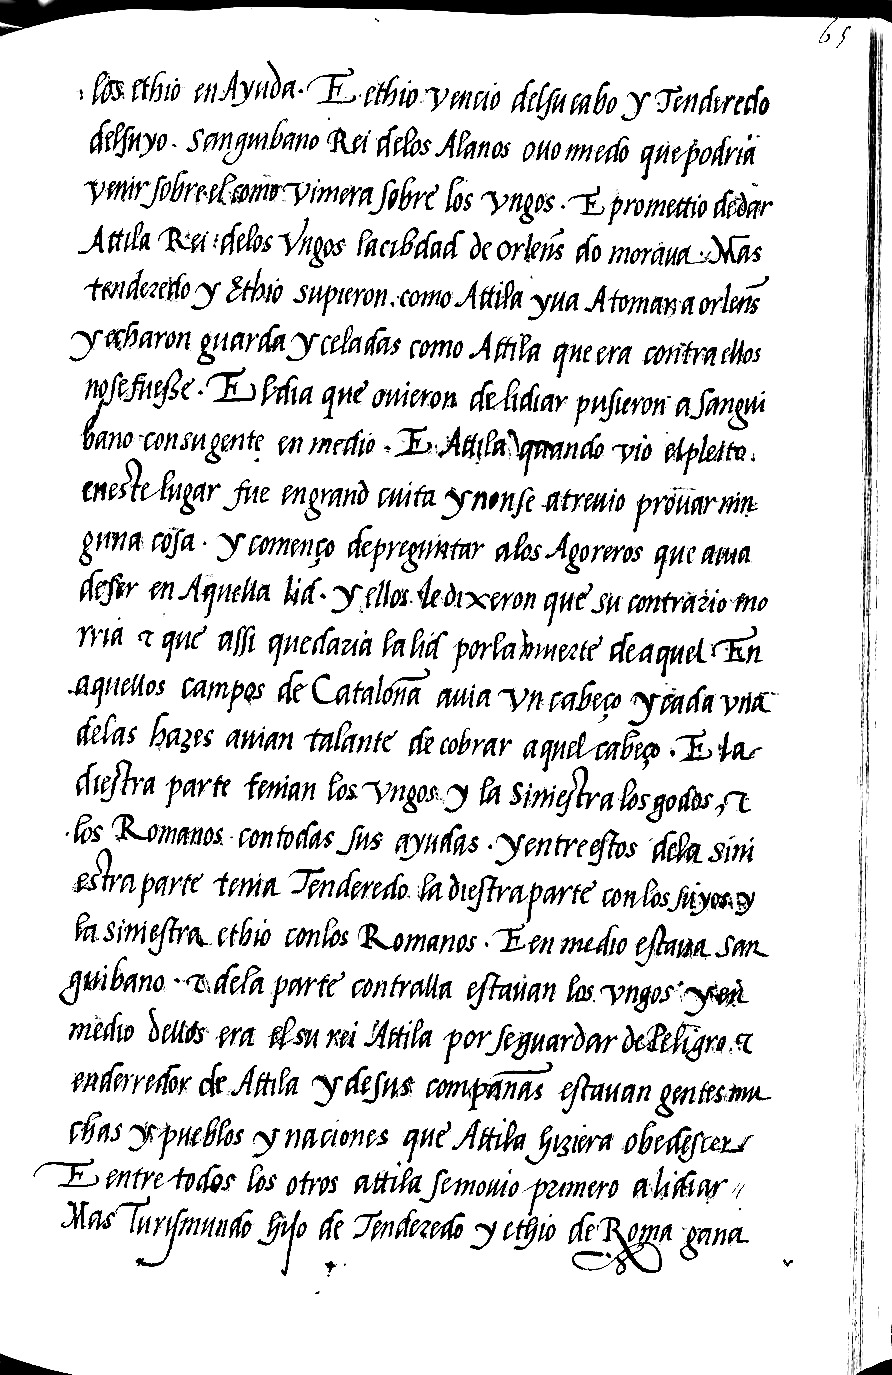 65
los ethio en Ayuda. E ethio vencio delsu cabo y Tenderedo
delsuyo. Sanguibano Rei delos Alanos ouo miedo que podria
venir sobre el como viniera sobre los vngos. E promettio de dar
Attila Rei delos Vngos la cibdad de orlens do moraua. Mas
tenderedo y Ethio supieron como Attila yua A tomar a orlens
y echaron guarda y celadas como Attila que era contra ellos
no se fuesse. E l dia que ouieron de lidiar pusieron a sangui
bano con su gente en medio. E Attila quando vio el pleito
en este lugar fue en grand cuita y non se atreuio prouar nin
guna cosa. y començo de preguntar a los Agoreros que auia
de ser en Aquella lid. y ellos le dixeron que su contrario mo
rria τ que assi quedaria la lid por la muerte de aquel. En
aquellos campos de Cataloña auia vn cabeço y cada vna
de las hazes auian talante de cobrar aquel cabeço. E la
diestra parte tenian los vngos y la siniestra los godos, τ
los Romanos con todas sus ayudas. y entre estos dela sini
estra parte tenia Tenderedo la diestra parte con los suyos y
la siniestra ethio con los Romanos. E en medio estaua san
guibano. τ de la parte contralla estauan los vngos y en
medio dellos era el su rei Attila por se guardar de Peligro. τ
enderredor de Attila y de sus compañas estauan gentes mu
chas y pueblos y naciones que Attila hiziera obedescer
E entre todos los otros attila se mouio primero a lidiar //
Mas Turismundo hijo de Tenderedo y ethio de Roma gana